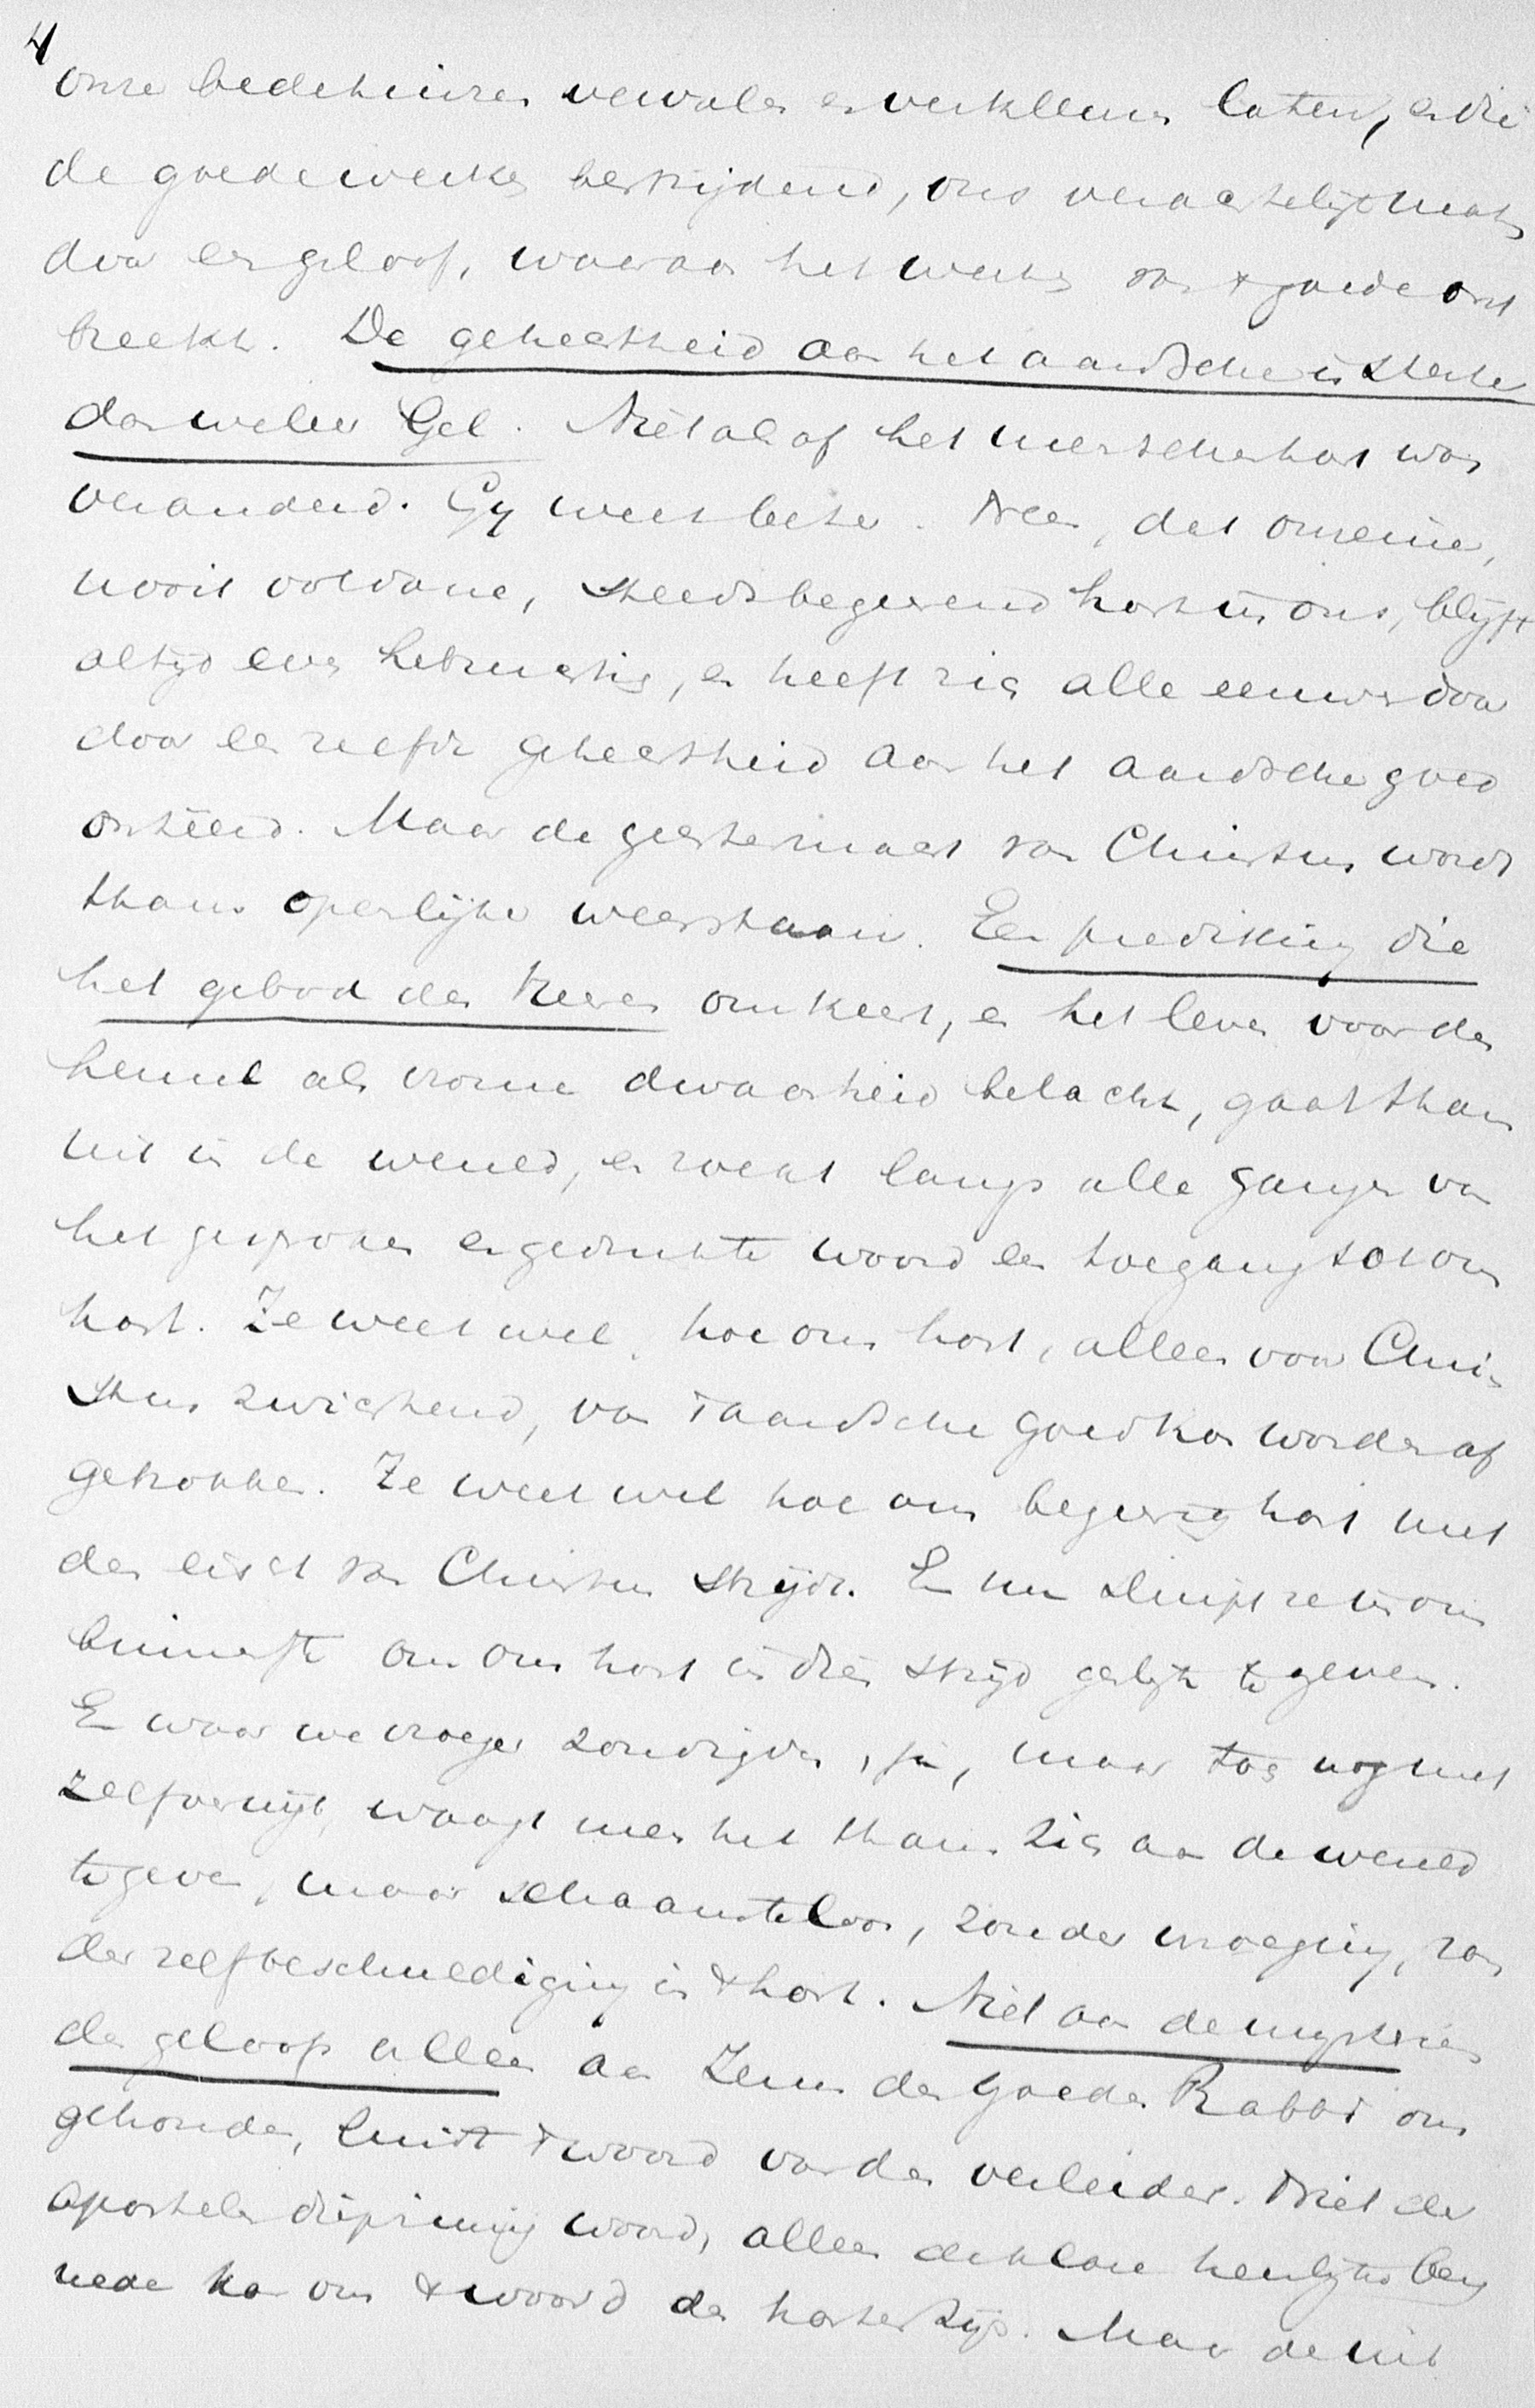 4
onze bedehuizen vervallen en verkleuren laten, en die
de goede werken bestrijdend, ons verachtelijk maken
door een geloof, waaraan het werken van 't goede ont
breekt. De gehechtheid aan het aardsche is sterker
dan weleer Gel. Niet alsof het menschenhart was
veranderd. Gij weet beter. Neen, dat onreine,
nooit voldane, steeds begeerend hart in ons, blijft
altijd even hebzuchtig, en heeft zich alle eeuwen door
door een zelfde gehechtheid aan het aardsche goed
onteerd. Maar de geestesmacht van Christus wordt
thans openlijker weerstaan. Een prediking die
het gebod des Heeren omkeert, en het leven voor den
hemel als vrome dwaasheid belacht, gaat thans
uit in de wereld, en zoekt langs alle gangen van
het gesproken en gedrukte woord een toegang tot ons
hart. Ze weet wel, hoe ons hart, alleen voor Chri-
stus zwichtend, van 't aardsche goed kan worden af
getrokken. Ze weet wel hoe ons begeerig hart met
den eisch van Christus strijdt. En nu sluipt ze in ons
binnenste om ons hart in dien strijd gelijk te geven.
En waar we vroeger zondigden, ja, maar toch nog met
zelfverwijt, waagt men het thans zich aan de wereld
te geven, maar schaamteloos, zonder wroeging, zon
der zelfbeschuldiging in 't hart. Niet aan de mysterien
des geloofs alleen aan Jezus den goeden Rabbi ons
gehouden, luidt 't woord van den verleider. Niet der
Apostelen diepzinnig woord, alleen de klare heerlijke berg
rede kan ons 't woord des harten zijn. Maar de uit